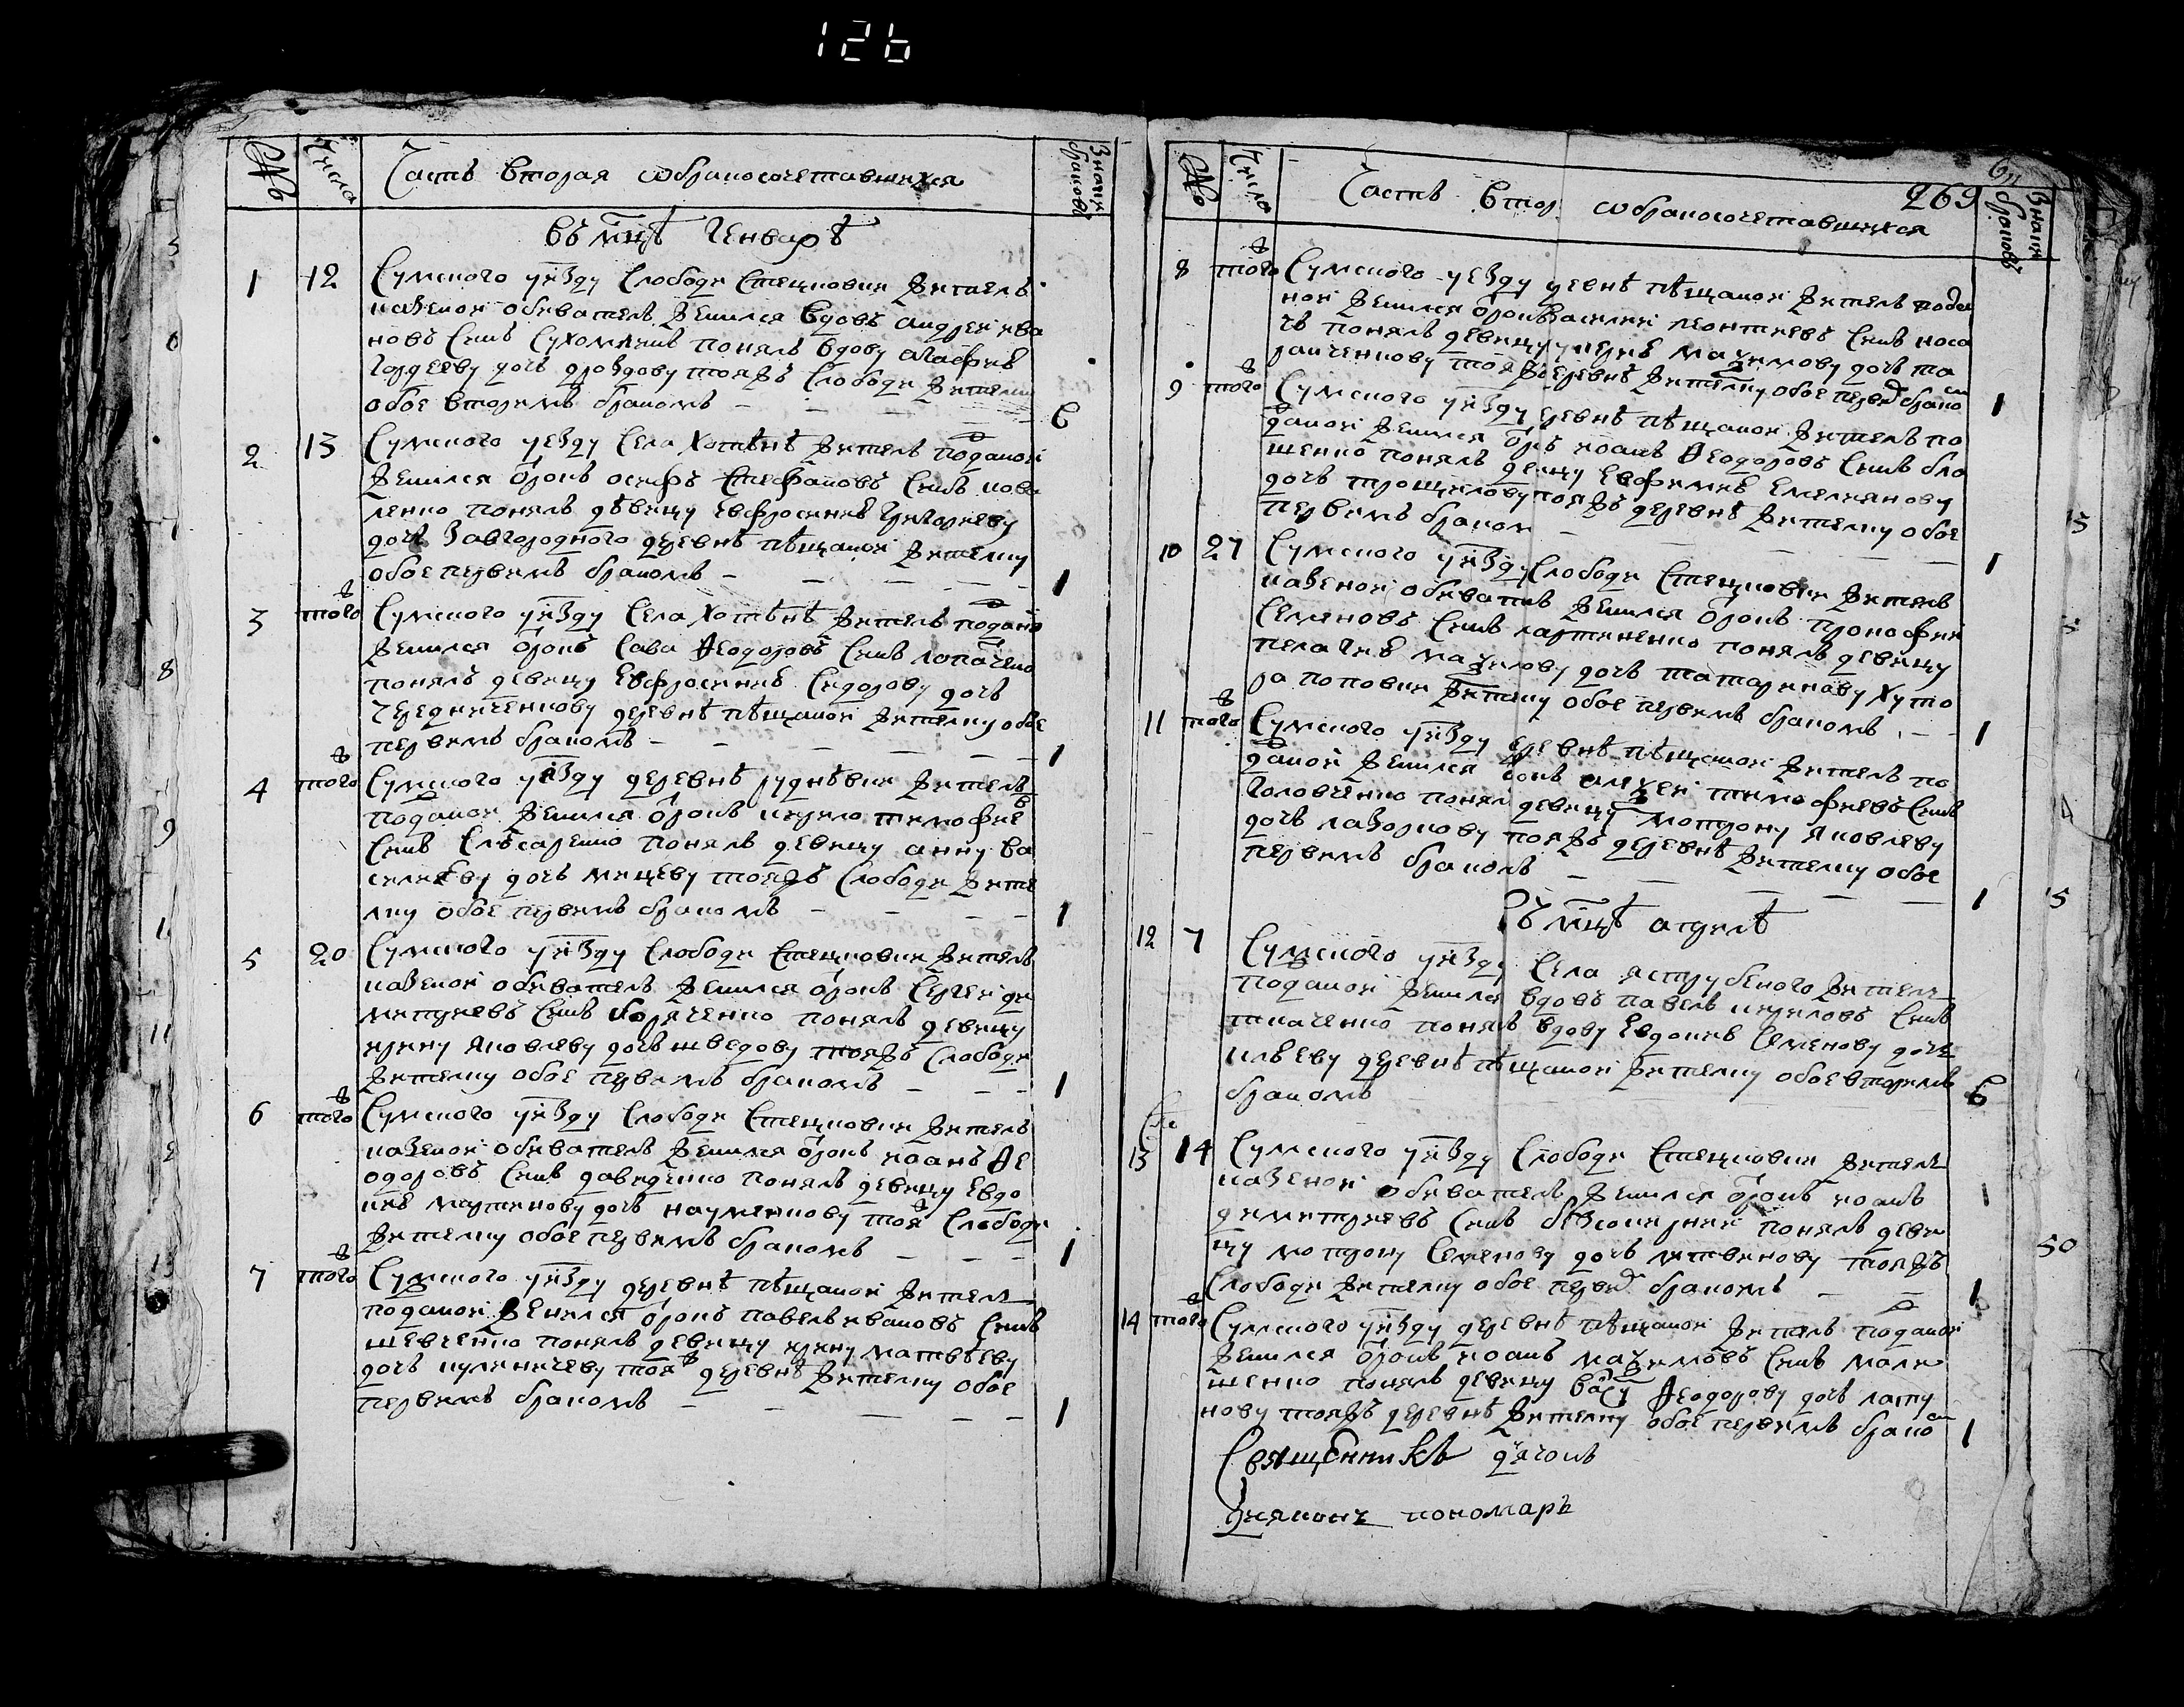 126
№ Числа Часть вторая ѡ бракосочетавшихся Знаки браковъ
въ мцѣ генварѣ
1 12 Сумского уѣзду слободи Стецковки житель
казеной обиватель женился вдовъ андрей ива
новъ синъ Сухомлинъ понялъ вдову агафию
гордееву дочь дроздову тояжъ слободи жителку
обое вторимъ бракомъ 6
2 13 Сумского уезду села Хотѣнѣ житель поданой
женился отрокъ осифъ Стефановъ синъ кова
ленко понялъ дѣвицу Евфросинию григориеву
дочь завгородного деревнѣ пѣщаной жителку
обое первимъ бракомъ 1
3 тогож Сумского уѣзду села Хотѣнѣ житель подано
женился отрокъ Сава Ѳеодоровъ синъ
понялъ девицу Евфросинию Сидорову дочь
чередниченкову деревнѣ пѣщаной жителку обое
первимъ бракомъ 1
4 тогож Сумского уѣзду деревнѣ руднѣвки житель
поданой женился отрокъ кирило тимофие
синъ Слѣсаренко понялъ девицу анну ва
силиеву дочь тояжъ слободи жите
лку обое первимъ бракомъ 1
5 20 Сумского уѣзду слободи Стецковки житель
казеной обиватель женился отрокъ Сергей ди
митриевъ синъ понялъ девицу
ирину яковлеву дочь шведову тояжъ слободи
жителку обое первимъ бракомъ 1
6 тогож Сумского уѣзду слободи Стецковки житель
казеной обиватель женился отрокъ иоанъ Ѳе
одоровъ синъ давиденко понялъ девицу Евдо
кию мартинову дочь науменкову тояж слободи
жителку обое первимъ бракомъ 1
7 тогож Сумского уѣзду деревнѣ пѣщаной жител
поданой женился отрокъ павелъ ивановъ синъ
шевченко понялъ девицу ирину матвѣеву
дочь кулиничеву тояж деревнѣ жителку обое
первимъ бракомъ 1
№ Числа Часть втор ѡ бракосочетавшихся 269 Знаки браковъ
8 тогож Сумского уезду девнѣ пѣщаной житель пода
ной женился отрокъ василий леонтиевъ синъ носа
чъ понялъ девицу маѯимову дочь та
ранченкову тояж деревнѣ жителку обое перви брако 1
9 тогож Сумского уѣзду деревнѣ пѣщаной житель по
даной женился отрокъ иоанъ Ѳеодоровъ синъ
понялъ девицу Евфимию Емелиянову
дочь тояжъ деревнѣ жителку обое
первимъ браком 1
10 27 Сумского уѣзду слободи Стецковки житель
казеной обиватель женился отрокъ прокофий
Семеновъ синъ понялъ девицу
пелагию маѯимову дочь татаринову хуто
ра поповки жителку обое первимъ бракомъ 1
11 тогож Сумского уѣзду деревнѣ пѣщаной житель по
даной женился отрокъ алеѯей тимофиевъ синъ
головченко понял девицу мотрону яковлеву
дочь лазоркову тояжъ деревнѣ жителку обое
первимъ бракомъ 1
въ мцѣ апрелѣ
12 7 Сумского уѣзду села яструбеного жител
поданой женился вдовъ павелъ кириловъ синъ
ткаченко понялъ вдову Евдокию Семенову дочь
илѣеву деревнѣ пѣщаной жителку обое вторимъ
бракомъ 6
13 14 Сумского уѣзду слободи Стецковки жител
казеной обиватель женился отрокъ иоанъ
димитриевъ синъ понялъ деви
цу мотрону Семенову дочь литвинову тояжъ
слободи жителку обое перви бракомъ 1
14 тогож Сумского уѣзду деревнѣ пѣщаной житель поданой
женился отрокъ иоанъ маѯимовъ синъ
понялъ девицу Ѳеодорову дочь
тояжъ деревнѣ жителку обое первимъ брако 1
Священникъ
пономаръ